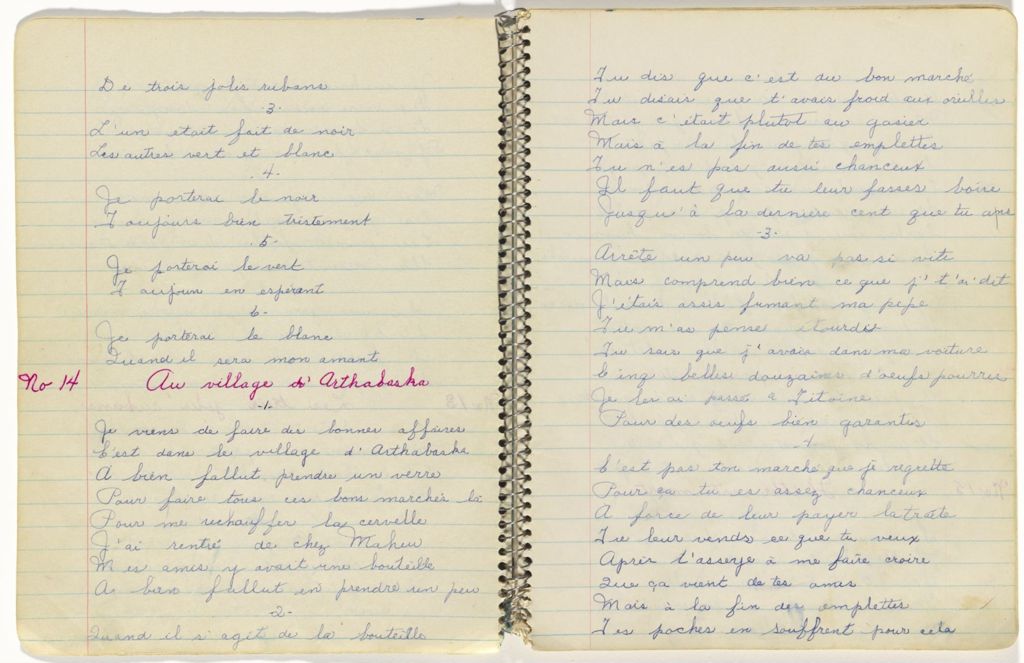 De trois jolis rubans
-3-
L'un etait fait de noir
Les autres vert et blanc
-4-
Je porterai le noir
Toujours bien tristement
-5-
Je porterai le vert
Toujour en espérant
6-
Je porterai le blanc
Quand il sera mon amant
No 14 Au village d'Arthabaska
-1-
Je viens de faire des bonnes affaires
C'est dans le village d'Arthabaska
A bien fallut prendre un verre
Pour faire tous ces bons marchés là
Pour me rechauffer la cervelle
J'ai rentré de chez Maheu
Mes amis y avait une bouteille
As bien fallut en prendre un peu
-2-
Quand il s'agit de la bouteille
Tu dis que c'est du bon marché
Tu disais que t'avais froid aux oreilles
Mais c'était plutot au gasier
Mais à la fin de tes emplettes
Tu n'es pas aussi chanceux
Il faut que tu leur fasses boire
Jusqu'à la derniere cent que tu
-3-
Arrête un peu va pas si vite
Mais comprend bien ce que j't'ai dit
J'étais assis fumant ma pipe
Tu m'as pensé étourdit
Tu sais que j'avais dans ma voiture
Cinq belles douzaines d'oeufs pourris
Je les ai passé à Titoine
Pour des oeufs bien garantis
-4-
C'est pas ton marché que je regrette
Pour ça tu es assez chanceux
A force de leur payer la traite
Tu leur vends ce que tu veux
Après t'asseye à me faire croire
Que ça vient de tes amis
Mais à la fin des emplettes
Tes poches en souffrent pour cela